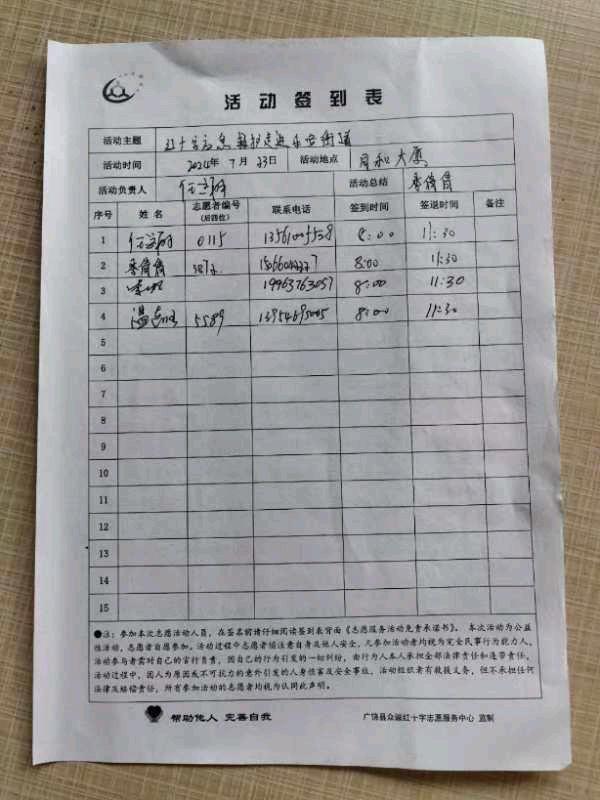 活动签到表
活动主题 红十字应急救护走进乐安街道
活动时间 2024年 7月 23日 活动地点 大厦
活动负责人 活动总结
序号 姓名 志愿者编号(后四位) 联系电话 签到时间 签退时间 备注
1 0115 8:00 11:30
2 8:00 11:30
3 19963763057 8:00 11:30
4 5589 13954695005 8:00 11:30
5
6
7
8
9
10
11
12
13
14
15
●注：参加本次志愿活动人员，在签名前请仔细阅读签到表背面《志愿服务活动免责承诺书》。本次活动为公益
性活动，志愿者自愿参加。活动过程中志愿者须注意自身及他人安全，凡参加活动者均视为完全民事行为能力人，
活动参与者需对自己的言行负责，因自己的行为引发的一切纠纷，由行为人本人承担全部法律责任和连带责任。
活动过程中，因人为原因或不可抗力的意外引发的人身伤害及安全事故，活动组织者有救援义务，但不承担任何
法律及赔偿责任，所有参加活动的志愿者均视为认同此声明。
帮助他人 完善自我 广饶县众诚红十字志愿服务中心 监制